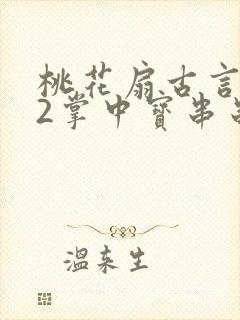 桃花扇古言
2掌中寶串
溫来生